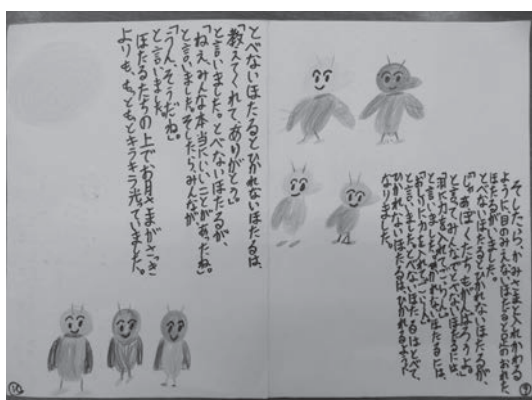 そしたら、かみさまと入れかわる
ように目のみえないほたると足のおれた
ほたるがいました。
とべないほたるとひかれないほたるが、
「じゃあ、ぼくたちもがんばろうよ。」
と言って、みんなでとべないほたるには、
と言いました。ひかれないほたるには、
「おしりに力を入れてごらん。」
と言いました。とべないほたるはとべて、
ひかれないほたるは、ひかれるように
なりました。
9
とべないほたるとひかれないほたるは、
「教えてくれて、ありがとう。」
と言いました。とべないほたるが、
「ねえ、みんな本当にいいことがあったね」
と言いました。そしたら、みんなが
「うん、そうだね。」
と言いました。
ほたるたちの上で、お月さまがさっき
よりも、もっともっとキラキラ光っていました。
10